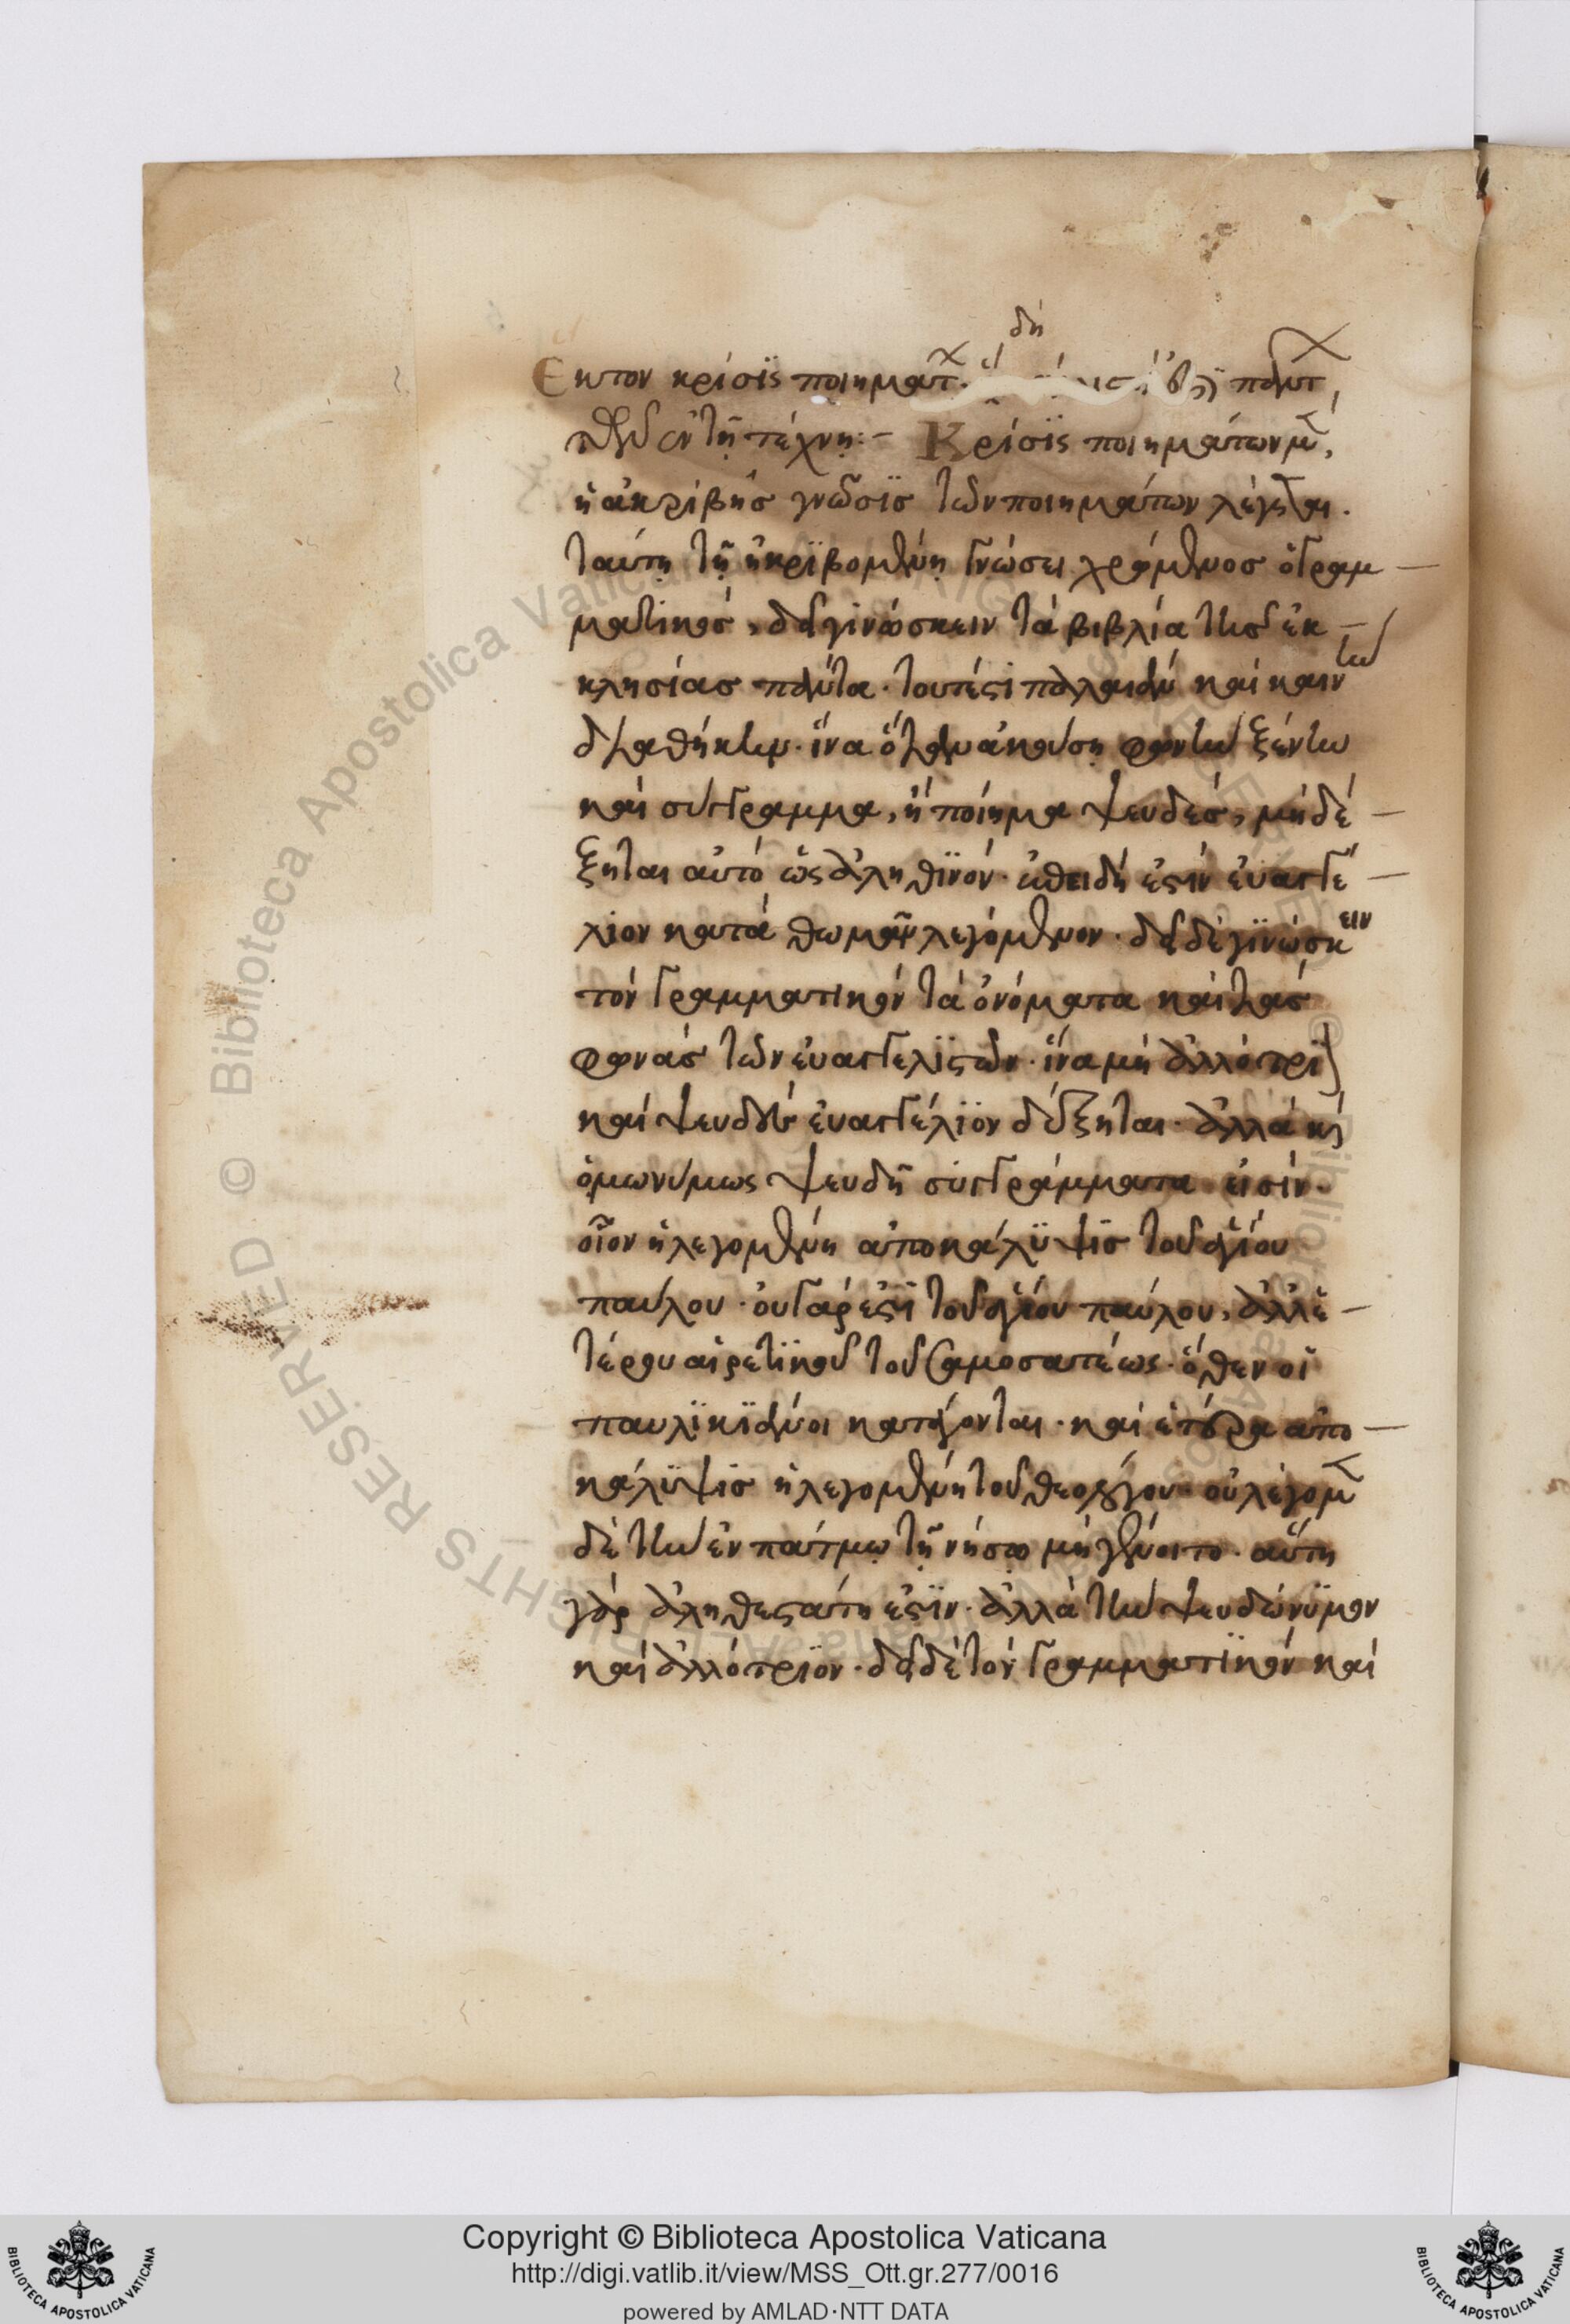 Εκτον κρίσϊς ποιημάτ πάντ
ἐν τῆ τέχνη:– Κρίσϊς ποιημάτων μ,
ἡ ἀκρίβὴσ γνῶσϊσ τῶν ποιημάτων λέγεται.
ταύτη τῆ ἠκρϊβομένη γνώσει χρόμενοσ ὁ γραμ
ματικόσ, δεῖ γινώσκειν τὰ βιβλία τῆσ ἐκ
κλησίασ πάντα· τουτέστι παλαιὰν καὶ καιν
διαθήκην· ἵνα ὅταν ἀκούση φωνὴν ξένην
καὶ σύγγραμμα, ἢ ποίημα ψευδέσ, μὴ δέ
ξηται αὐτὸ ὡς ἀληθϊνόν· ἐπειδὴ ἐστιν ἐυαγγέ
λιον κατὰ θωμᾶν λεγόμενον· δεῖ δὲ γϊνώσκειν
τὸν γραμματικὸν τὰ ὀνόματα καὶ τὰσ
φωνὰσ τῶν ἐυαγγελϊστῶν· ἵνα μὴ ἀλλότρϊ
καὶ ψευδὲσ ἐυαγγέλϊον δέξηται· ἀλλὰ κ
ὁμωνύμως ψευδῆ συγγράμματα εἰσίν·
οἷον ἡ λεγομένη ἀποκάλϋψϊσ τοῦ ἁγίου
παύλου· ὀυ γάρ ἐστϊ τοῦ ἁγίου παύλου, ἀλλ' ἑ
τέρου αἱρετϊκοῦ τοῦ σαμοσατέως· ὅθεν οἱ
παυλϊκϊάνοι κατάγονται· καὶ ἑτέρα ἀπο
κάλϋψϊσ ἡ λεγομένη τοῦ θεολόγου· οὐ λέγομ
δὲ τὴν ἐν πάτμω τῆ νήσω μὴ γένοιτο· αὕτη
γὰρ ἀληθεστάτη ἐστϊν· ἀλλὰ τὴν ψευδώνϋμον
καὶ ἀλλότρϊον· δεῖ δὲ τὸν γραμματϊκὸν καὶ
Copyright © Biblioteca Apostolica Vaticana
http://digi.vatlib.it/view/MSS_Ott.gr.277/0016
powered by AMLAD·NTT DATA
BIBLIOTECA APOSTOLICA VATICANA
BIBLIOTECA APOSTOLICA VATICANA